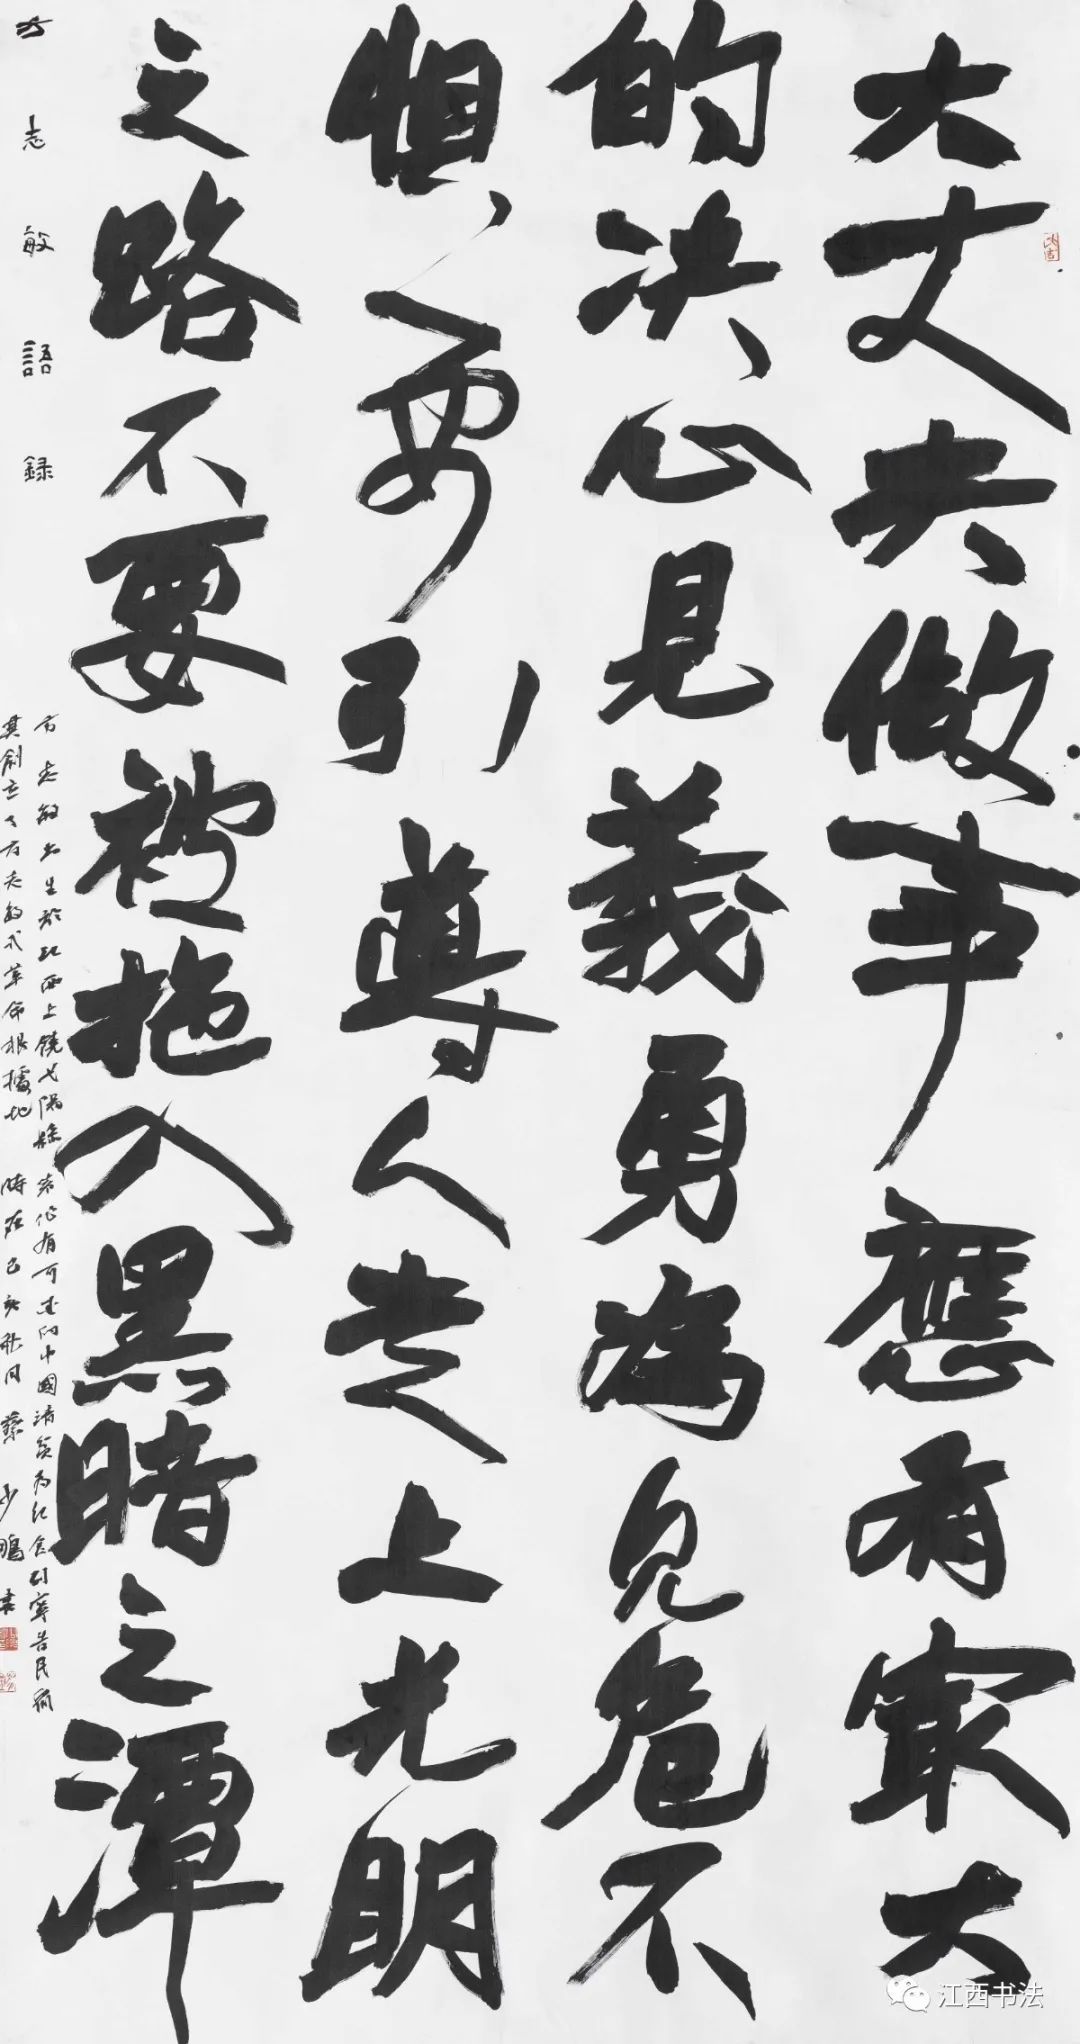 大丈夫做事應有最大
的决心見義勇為見危不
惧要引導人走上光明
之路不要被拖入黑暗之潭
方志敏語録
方志敏出生於江西上饒弋陽縣 著作有可愛的中國清貧為紀念
其創立了方志敏式革命根據地 時在己亥秋月 蔡少鵬書
江西书法